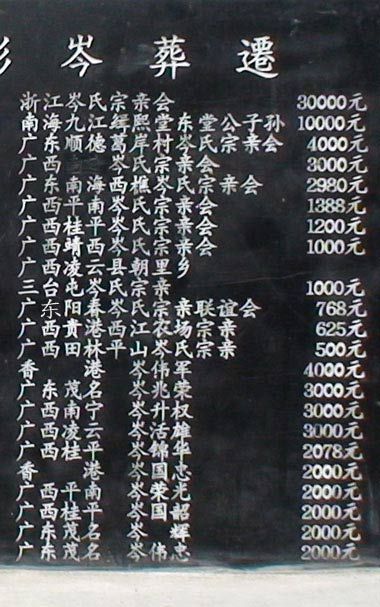 岑葬遷
浙江岑氏宗亲会 30000元
南海九江缉熙堂东堂公子孙 10000元
广东顺德葛岸村岑氏宗亲会 4000元
广西岑氏宗亲会 3000元
广东南海西樵岑氏宗亲会 2980元
广西平南岑氏宗亲会 1388元
广西桂平岑氏宗亲会 1200元
广西靖西岑氏宗亲会 1000元
广西凌云县朝里乡
三台屯岑氏宗亲 1000元
广东阳春岑氏宗亲联谊会 768元
广西贵港西江农场宗亲 625元
广西田林平山岑氏宗亲 500元
香港 岑伟军 4000元
广东茂名 岑兆荣 3000元
广西南宁 岑升权 3000元
广西凌云 岑活雄 3000元
广西桂平 岑锦华 2078元
香港 岑国忠 2000元
广西平南 岑荣光 2000元
广西桂平 岑国 2000元
广东茂名 岑韶辉 2000元
广东茂名 岑伟忠 2000元